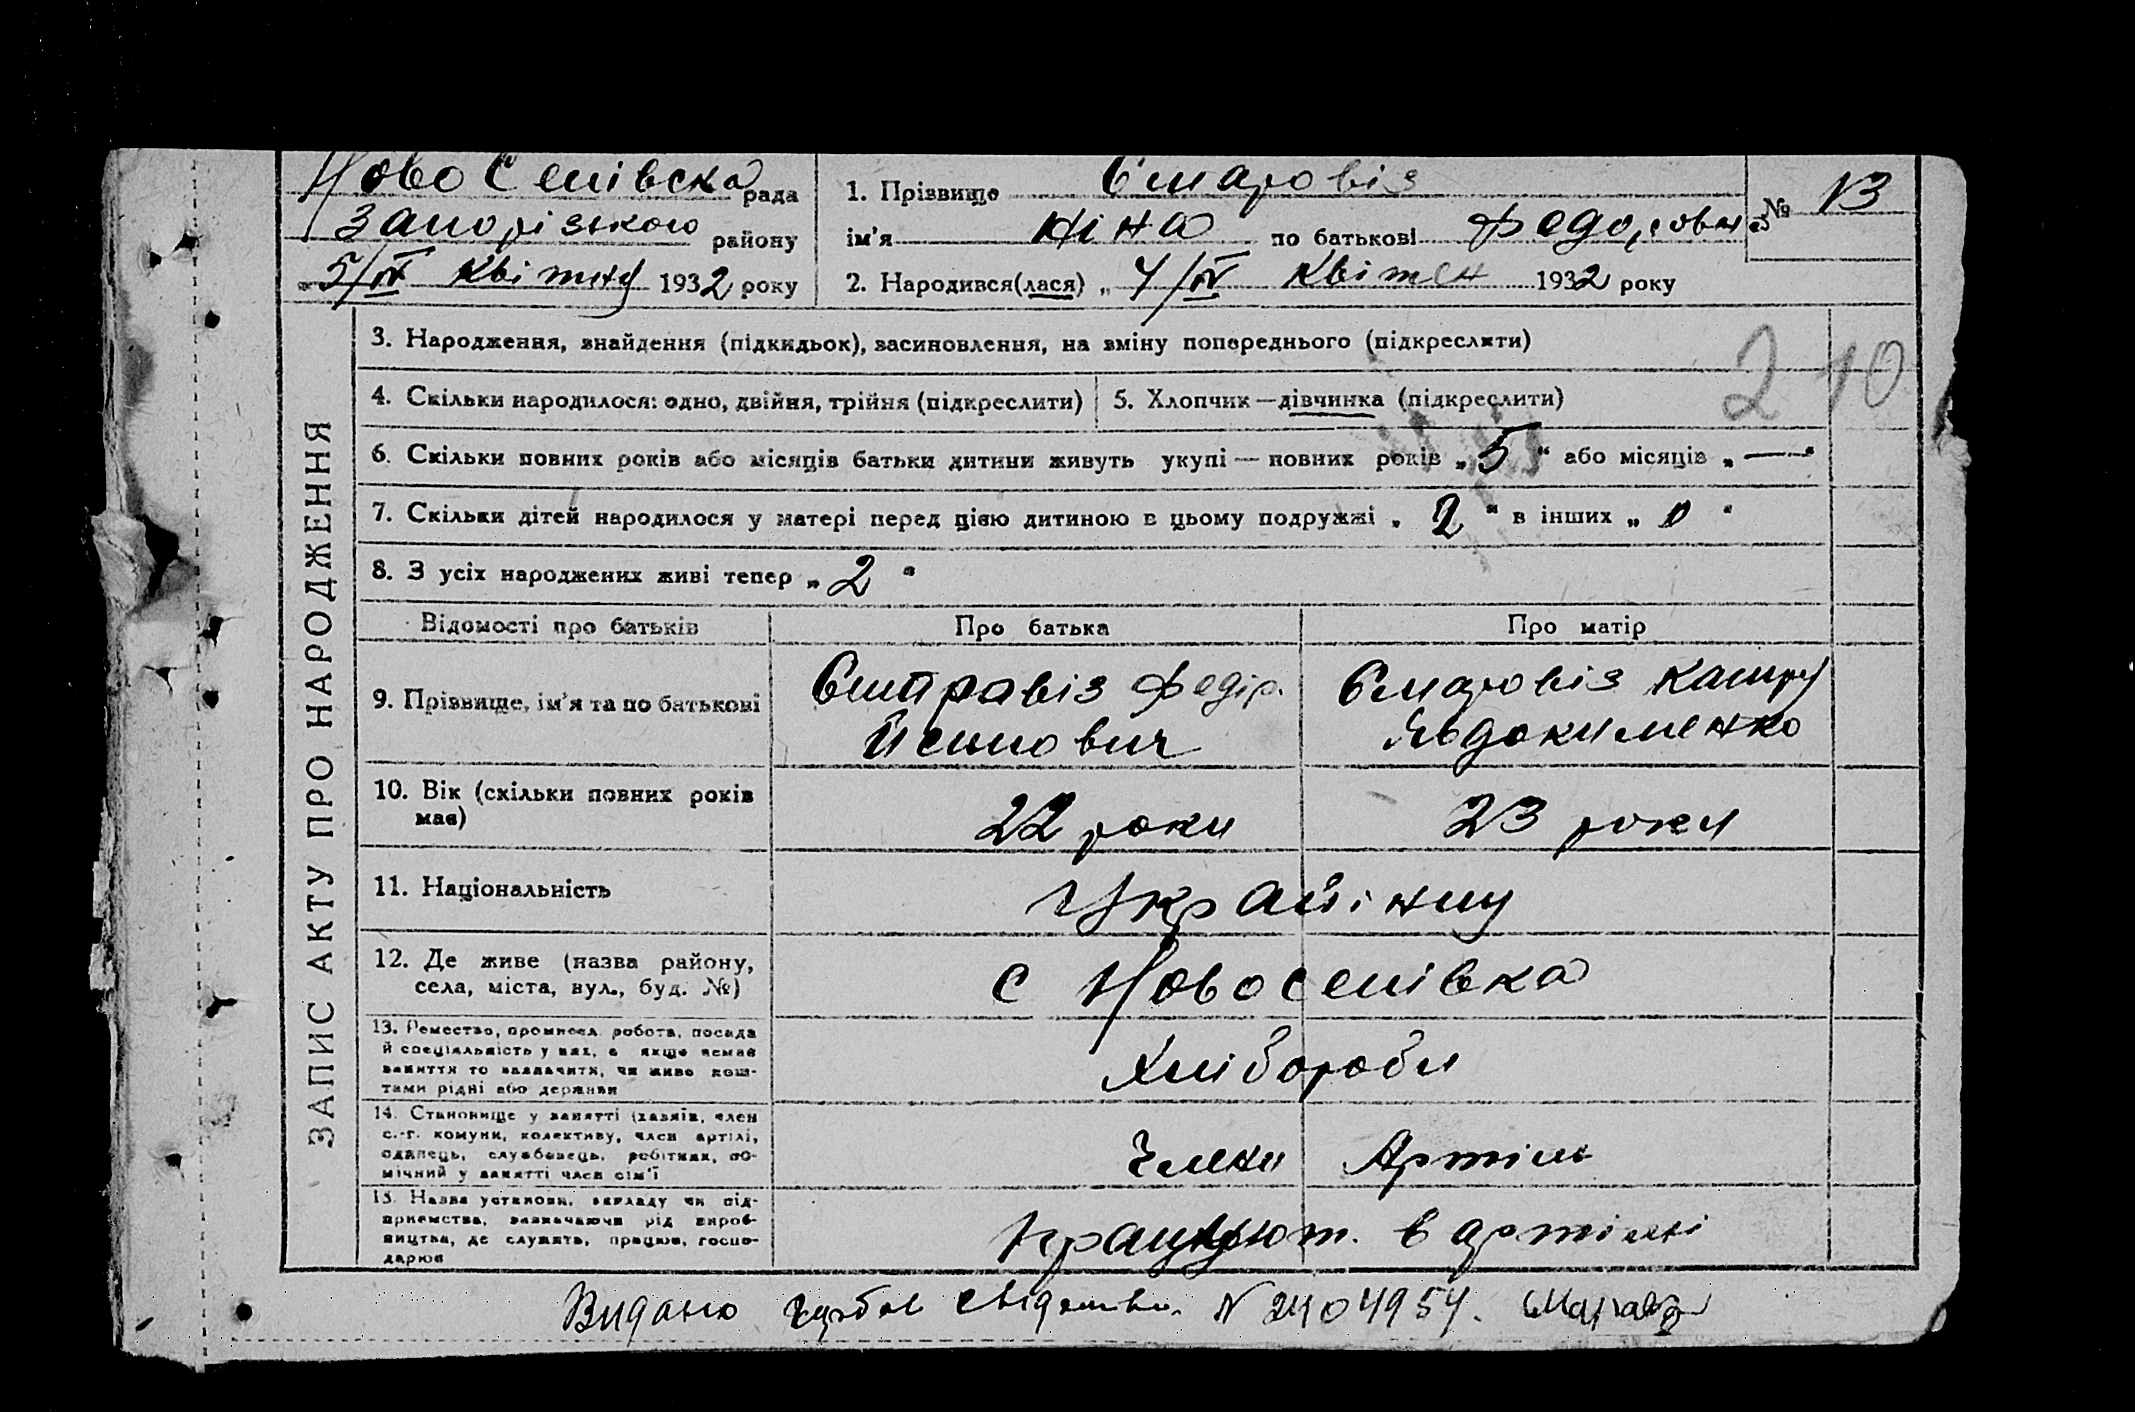 Ново Селівска рада
Запорізького району
„5/IV Квітня 1932 року
1. Прізвище
ім'я Ніна по батькові Федоровна
2. Народився(лася) „4/IV Квітен 1932 року
№ 13
210
ЗАПИС АКТУ ПРО НАРОДЖЕННЯ
3. Народження, знайдення (підкидьок), засиновлення, на зміну попереднього (підкреслити)
4. Скільки народилося: одно, двійня, трійня (підкреслити)
5. Хлопчик—дівчинка (підкреслити)
6. Скільки повних років або місяців батьки дитини живуть укупі — повних років „5“ або місяців „—“
7. Скільки дітей народилося у матері перед цією дитиною в цьому подружжі „2“ в інших „0“
8. З усіх народжених живі тепер „2“
Відомості про батьків Про батька Про матір
9. Прізвище, ім'я та по батькові
Федір.
Явдокименко
10. Вік (скільки повних років має)
22 роки 23 роки
11. Національність
Украйінці
12. Де живе (назва району,
села, міста, вул., буд. №)
с Новоселівка
13. Ремество, промисел, робота, посада
й спеціяльність у них, а якщо немає
заняття то зазначити, чи живе кош-
тами рідні або держави
Хлібороби
14. Становище у занятті (хазяїн, член
с.-г. комуни, колективу, член артілі,
одинець, службовець, робітник, по-
мічний у занятті член сім'ї
Члени Артіли
15. Назва установи, закладу чи під-
приємства, зазначаючи рід вироб-
ництва, де служить, працює, госпо-
дарює
Працюют. в артілі
Видано свідоцтво N 2404954.